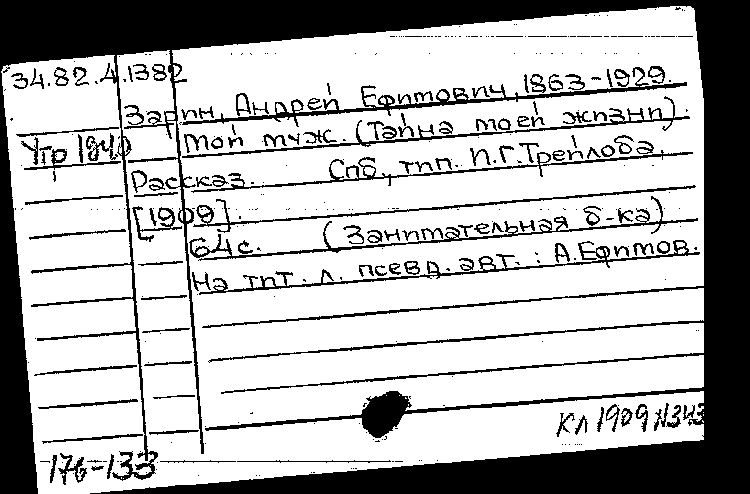 34.82.4.1382
Зарин, Андрей Ефимович, 1863-1929.
Мой муж. (Тайна моей жизни).
Угр 1840
Рассказ. Спб., тип. П.Г.Трейлоба,
[1909].
64с. (Занимательная б-ка)
На тит. л. псевд. авт. : А.Ефимов.
Кл 1909 №343
176-133